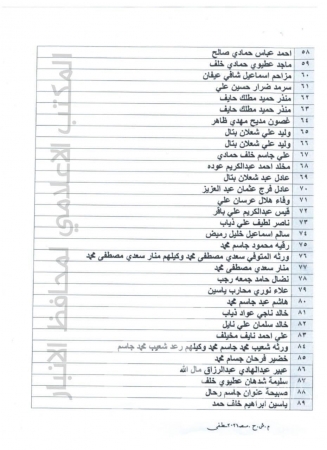 ٥٨ احمد عباس حمادي صالح
٥٩ ماجد عطيوي حمادي خلف
٦٠ مزاحم اسماعيل شافي عيفان
٦١ سرمد ضرار حسين علي
٦٢ منذر حميد مطلك حايف
٦٣ منذر حميد مطلك حايف
٦٤ غصون مديح مهدي ظاهر
٦٥ وليد علي شعلان بتال
٦٦ وليد علي شعلان بتال
٦٧ علي جاسم خلف حمادي
٦٨ مخلد احمد عبدالكريم عوده
٦٩ عادل عبد شعلان بتال
٧٠ عادل فرج عثمان عبد العزيز
٧١ وفاء هلال عرسان علي
٧٢ قيس عبدالكريم علي باقر
٧٣ ناصر لطيف علي ذياب
٧٤ سالم اسماعيل خليل رميض
٧٥ رقيه محمود جاسم محمد
٧٦ ورثه المتوفي سعدي مصطفى محمد وكيلهم منار سعدي مصطفى محمد
٧٧ منار سعدي مصطفى محمد
٧٨ نضال حامد جمعه رجب
٧٩ علاء نوري محارب ياسين
٨٠ هاشم عبد جاسم محمد
٨١ خالد ناجي عواد ذياب
٨٢ خالد سلمان علي نايل
٨٣ علي احمد نايف مخيلف
٨٤ ورثه شعيب محمد جاسم محمد وكيلهم رعد شعيب محمد جاسم
٨٥ خضير فرحان جسام محمد
٨٦ عبير عبدالهادي عبدالرزاق مال الله
٨٧ سليمة شدهان عطيوي خلف
٨٨ صبيحة عنوان جاسم رحال
٨٩ ياسين ابراهيم خلف حمد
المكتب الاعلامي لمحافظ الانبار